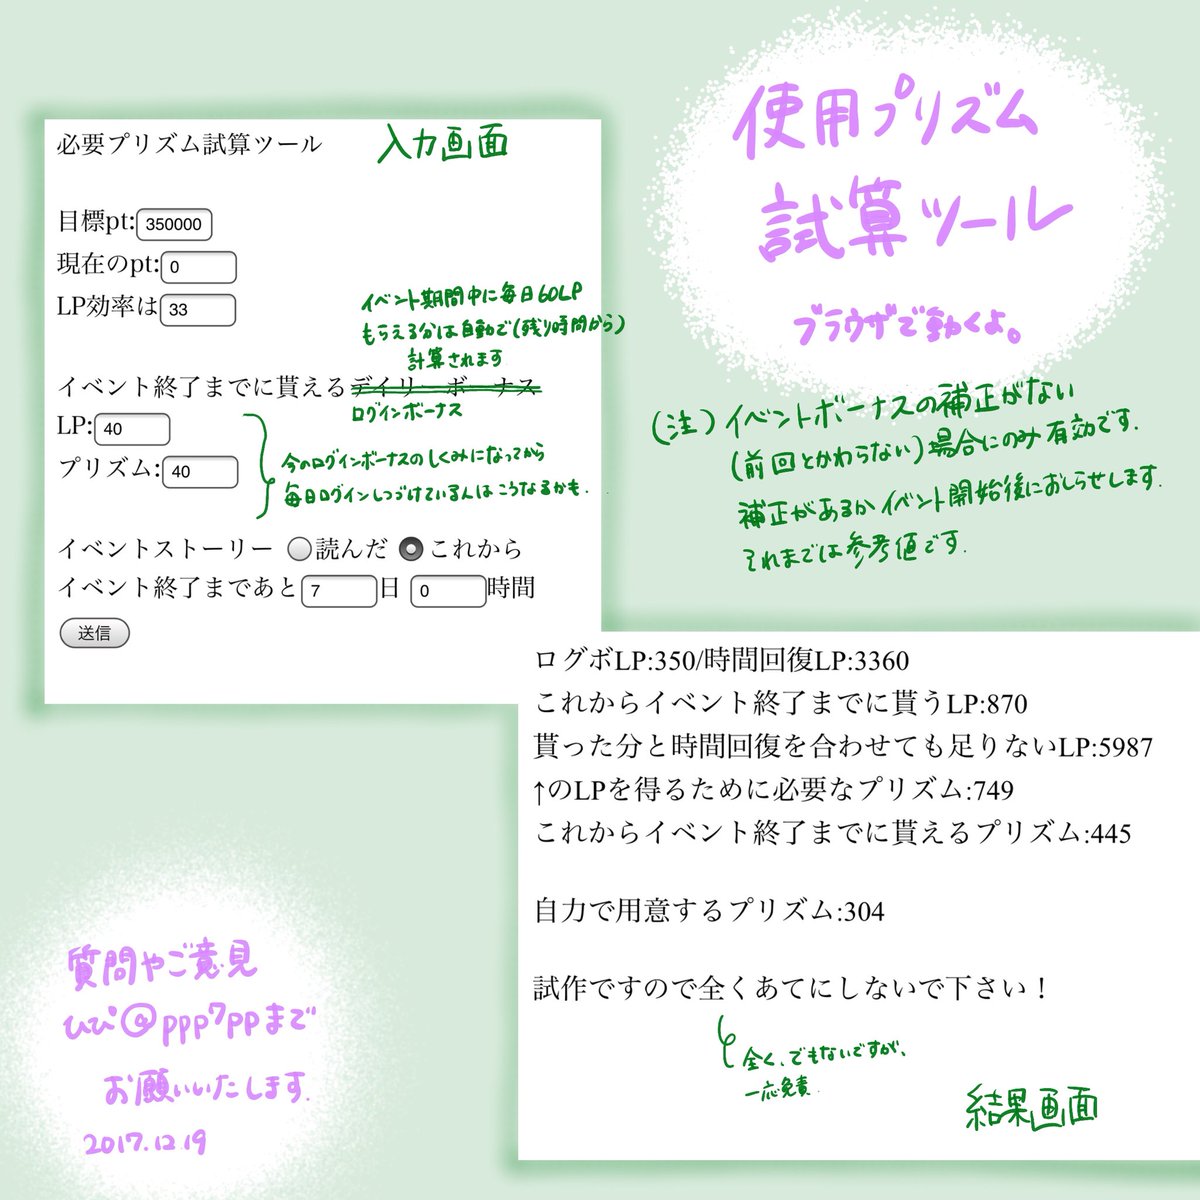 使用プリズム
試算ツール
ブラウザで動くよ。
(注)イベントボーナスの補正がない
(前回とかわらない)場合にのみ有効です.
補正があるかイベント開始後におしらせします.
それまでは参考値です.
必要プリズム試算ツール
入力画面
目標pt:350000
現在のpt:0
LP効率は33
イベント期間中に毎日60LP
もらえる分は自動で(残り時間から)
計算されます
イベント終了までに貰えるデイリーボーナス
ログインボーナス
LP:40
プリズム:40
今のログインボーナスのしくみになってから
毎日ログインしつづけている人はこうなるかも.
イベントストーリー 読んだ これから
イベント終了まであと7日 0時間
送信
ログボLP:350/時間回復LP:3360
これからイベント終了までに貰うLP:870
貰った分と時間回復を合わせても足りないLP:5987
↑のLPを得るために必要なプリズム:749
これからイベント終了までに貰えるプリズム:445
自力で用意するプリズム:304
試作ですので全くあてにしないで下さい!
全く、でもないですが、
一応免責.
結果画面
質問やご意見
ひぴ@ppp7ppまで
お願いいたします.
2017.12.19